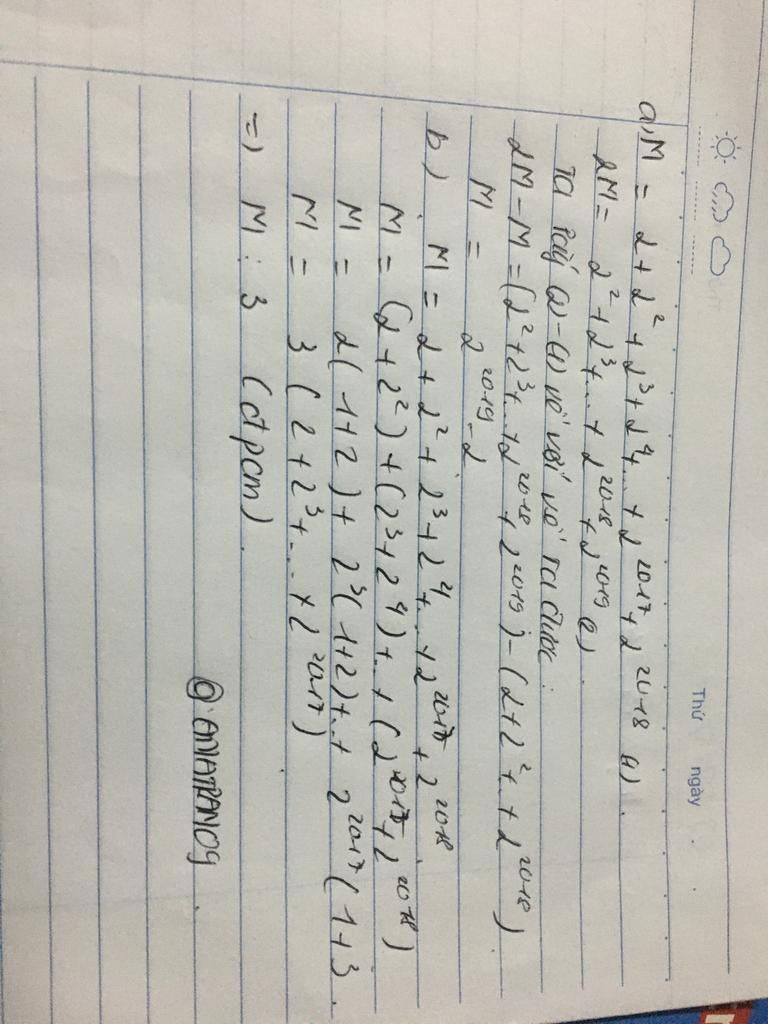 Thứ ngày
a, M = 2 + 2² + 2³ + 2⁴+...+ 2²⁰¹⁷ + 2²⁰¹⁸ (1).
2M = 2² + 2³+...+ 2²⁰¹⁸ + 2²⁰¹⁹ (2).
Ta lấy (2) - (1) vế với vế ta được:
2M - M = (2² + 2³+...+2²⁰¹⁸ + 2²⁰¹⁹) - (2 + 2² +...+ 2²⁰¹⁸)
M = 2²⁰¹⁹ - 2
b) M = 2 + 2² + 2³ + 2⁴+...+2²⁰¹⁷ + 2²⁰¹⁸
M = (2 + 2²) + (2³ + 2⁴) +...+ (2²⁰¹⁷ + 2²⁰¹⁸)
M = 2(1+2) + 2³(1+2) +...+ 2²⁰¹⁷(1+3.
M = 3(2 + 2³ +...+ 2²⁰¹⁷)
=) M : 3 (đpcm).
@ANATRAN09